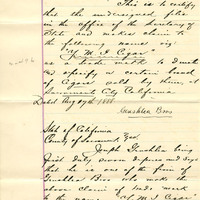 This is to certify
that the undersigned files
in the office of the Secretary of
State and makes claim to
the following name viz:
"Y. M. I. Cigar"
as a trade mark to
specify a certain brand
cigars sold by them at
Sacramento City California
Dated Aug 27th 1888
Bros
State of California
County of Sacramento
Joseph
first duly sworn deposes and says
that he is one of the firm of
Bros who make the
above claim of trade mark
to the name "Y. M. I. Cigar"